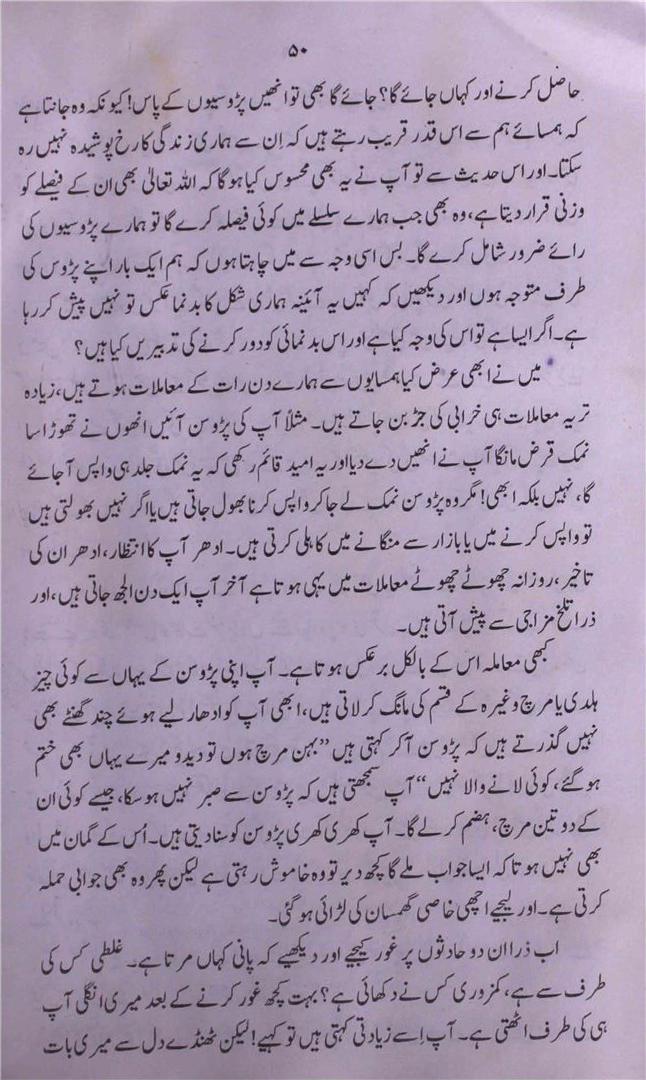 ۵۰
حاصل کرنے اور کہاں جائے گا؟ جائے گا بھی تو انھیں پڑوسیوں کے پاس! کیونکہ وہ جانتا ہے
کہ ہمسائے ہم سے اس قدر قریب رہتے ہیں کہ اِن سے ہماری زندگی کا رخ پوشیدہ نہیں رہ
سکتا۔ اور اس حدیث سے تو آپ نے یہ بھی محسوس کیا ہوگا کہ اللہ تعالیٰ بھی ان کے فیصلے کو
وزنی قرار دیتا ہے، وہ بھی جب ہمارے سلسلے میں کوئی فیصلہ کرے گا تو ہمارے پڑوسیوں کی
رائے ضرور شامل کرے گا۔ بس اسی وجہ سے میں چاہتا ہوں کہ ہم ایک بار اپنے پڑوس کی
طرف متوجہ ہوں اور دیکھیں کہ کہیں یہ آئینہ ہماری شکل کا بدنما عکس تو نہیں پیش کر رہا
ہے۔ اگر ایسا ہے تو اس کی وجہ کیا ہے اور اس بدنمائی کو دور کرنے کی تدبیریں کیا ہیں؟
میں نے ابھی عرض کیا ہمسایوں سے ہمارے دن رات کے معاملات ہوتے ہیں، زیادہ
تر یہ معاملات ہی خرابی کی جڑ بن جاتے ہیں۔ مثلاً آپ کی پڑوسن آئیں انھوں نے تھوڑا سا
نمک قرض مانگا آپ نے انھیں دے دیا اور یہ امید قائم رکھی کہ یہ نمک جلد ہی واپس آ جائے
گا، نہیں بلکہ ابھی! مگر وہ پڑوسن نمک لے جا کر واپس کرنا بھول جاتی ہیں یا اگر نہیں بھولتی ہیں
تو واپس کرنے میں یا بازار سے منگانے میں کاہلی کرتی ہیں۔ ادھر آپ کا انتظار، ادھر ان کی
تاخیر، روزانہ چھوٹے چھوٹے معاملات میں یہی ہوتا ہے آخر آپ ایک دن الجھ جاتی ہیں، اور
ذرا تلخ مزاجی سے پیش آتی ہیں۔
کبھی معاملہ اس کے بالکل برعکس ہوتا ہے۔ آپ اپنی پڑوسن کے یہاں سے کوئی چیز
ہلدی یا مرچ وغیرہ کے قسم کی مانگ کر لاتی ہیں، ابھی آپ کو ادھار لیے ہوئے چند گھنٹے بھی
نہیں گذرتے ہیں کہ پڑوسن آ کر کہتی ہیں ”بہن مرچ ہوں تو دیدو میرے یہاں بھی ختم
ہو گئے، کوئی لانے والا نہیں“ آپ سمجھتی ہیں کہ پڑوسن سے صبر نہیں ہو سکا، جیسے کوئی ان
کے دو تین مرچ، ہضم کر لے گا۔ آپ کھری کھری پڑوسن کو سنا دیتی ہیں۔ اُس کے گمان میں
بھی نہیں ہوتا کہ ایسا جواب ملے گا کچھ دیر تو وہ خاموش رہتی ہے لیکن پھر وہ بھی جوابی حملہ
کرتی ہے۔ اور لیجیے اچھی خاصی گھمسان کی لڑائی ہو گئی۔
اب ذرا ان دو حادثوں پر غور کیجیے اور دیکھیے کہ پانی کہاں مرتا ہے۔ غلطی کس کی
طرف سے ہے، کمزوری کس نے دکھائی ہے؟ بہت کچھ غور کرنے کے بعد میری انگلی آپ
ہی کی طرف اٹھتی ہے۔ آپ اِسے زیادتی کہتی ہیں تو کہیے! لیکن ٹھنڈے دل سے میری بات